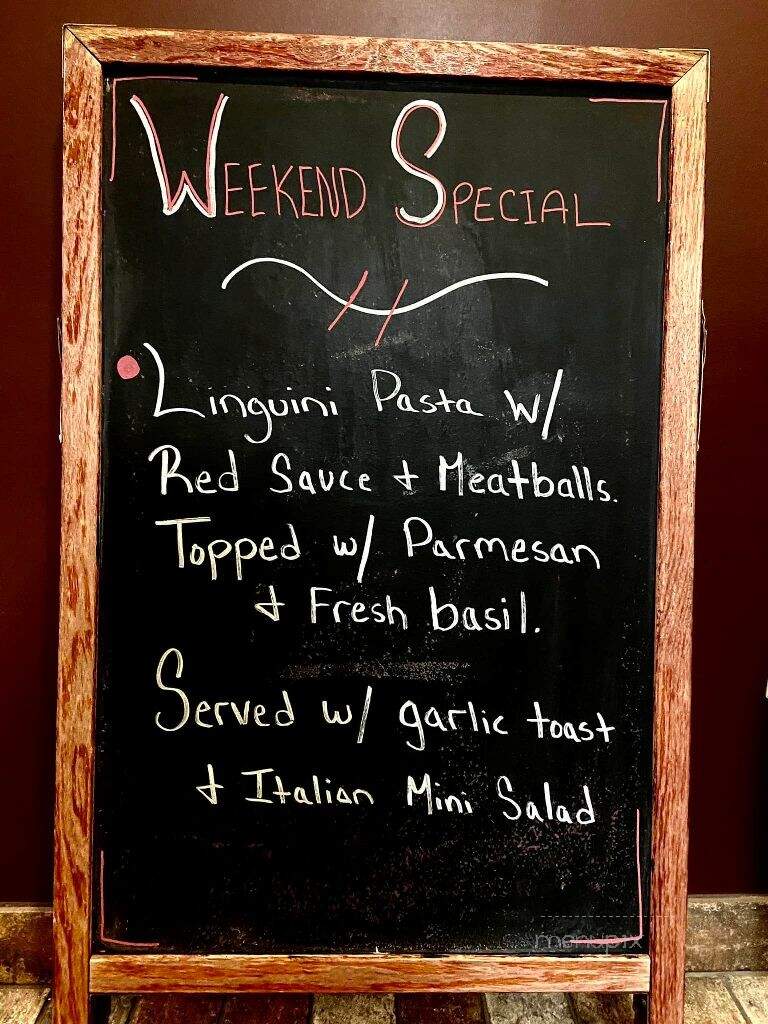 WEEKEND SPECIAL
Linguini Pasta w/
Red Sauce + Meatballs.
Topped w/ Parmesan
+ Fresh basil.
Served w/ garlic toast
+ Italian Mini Salad
menupix